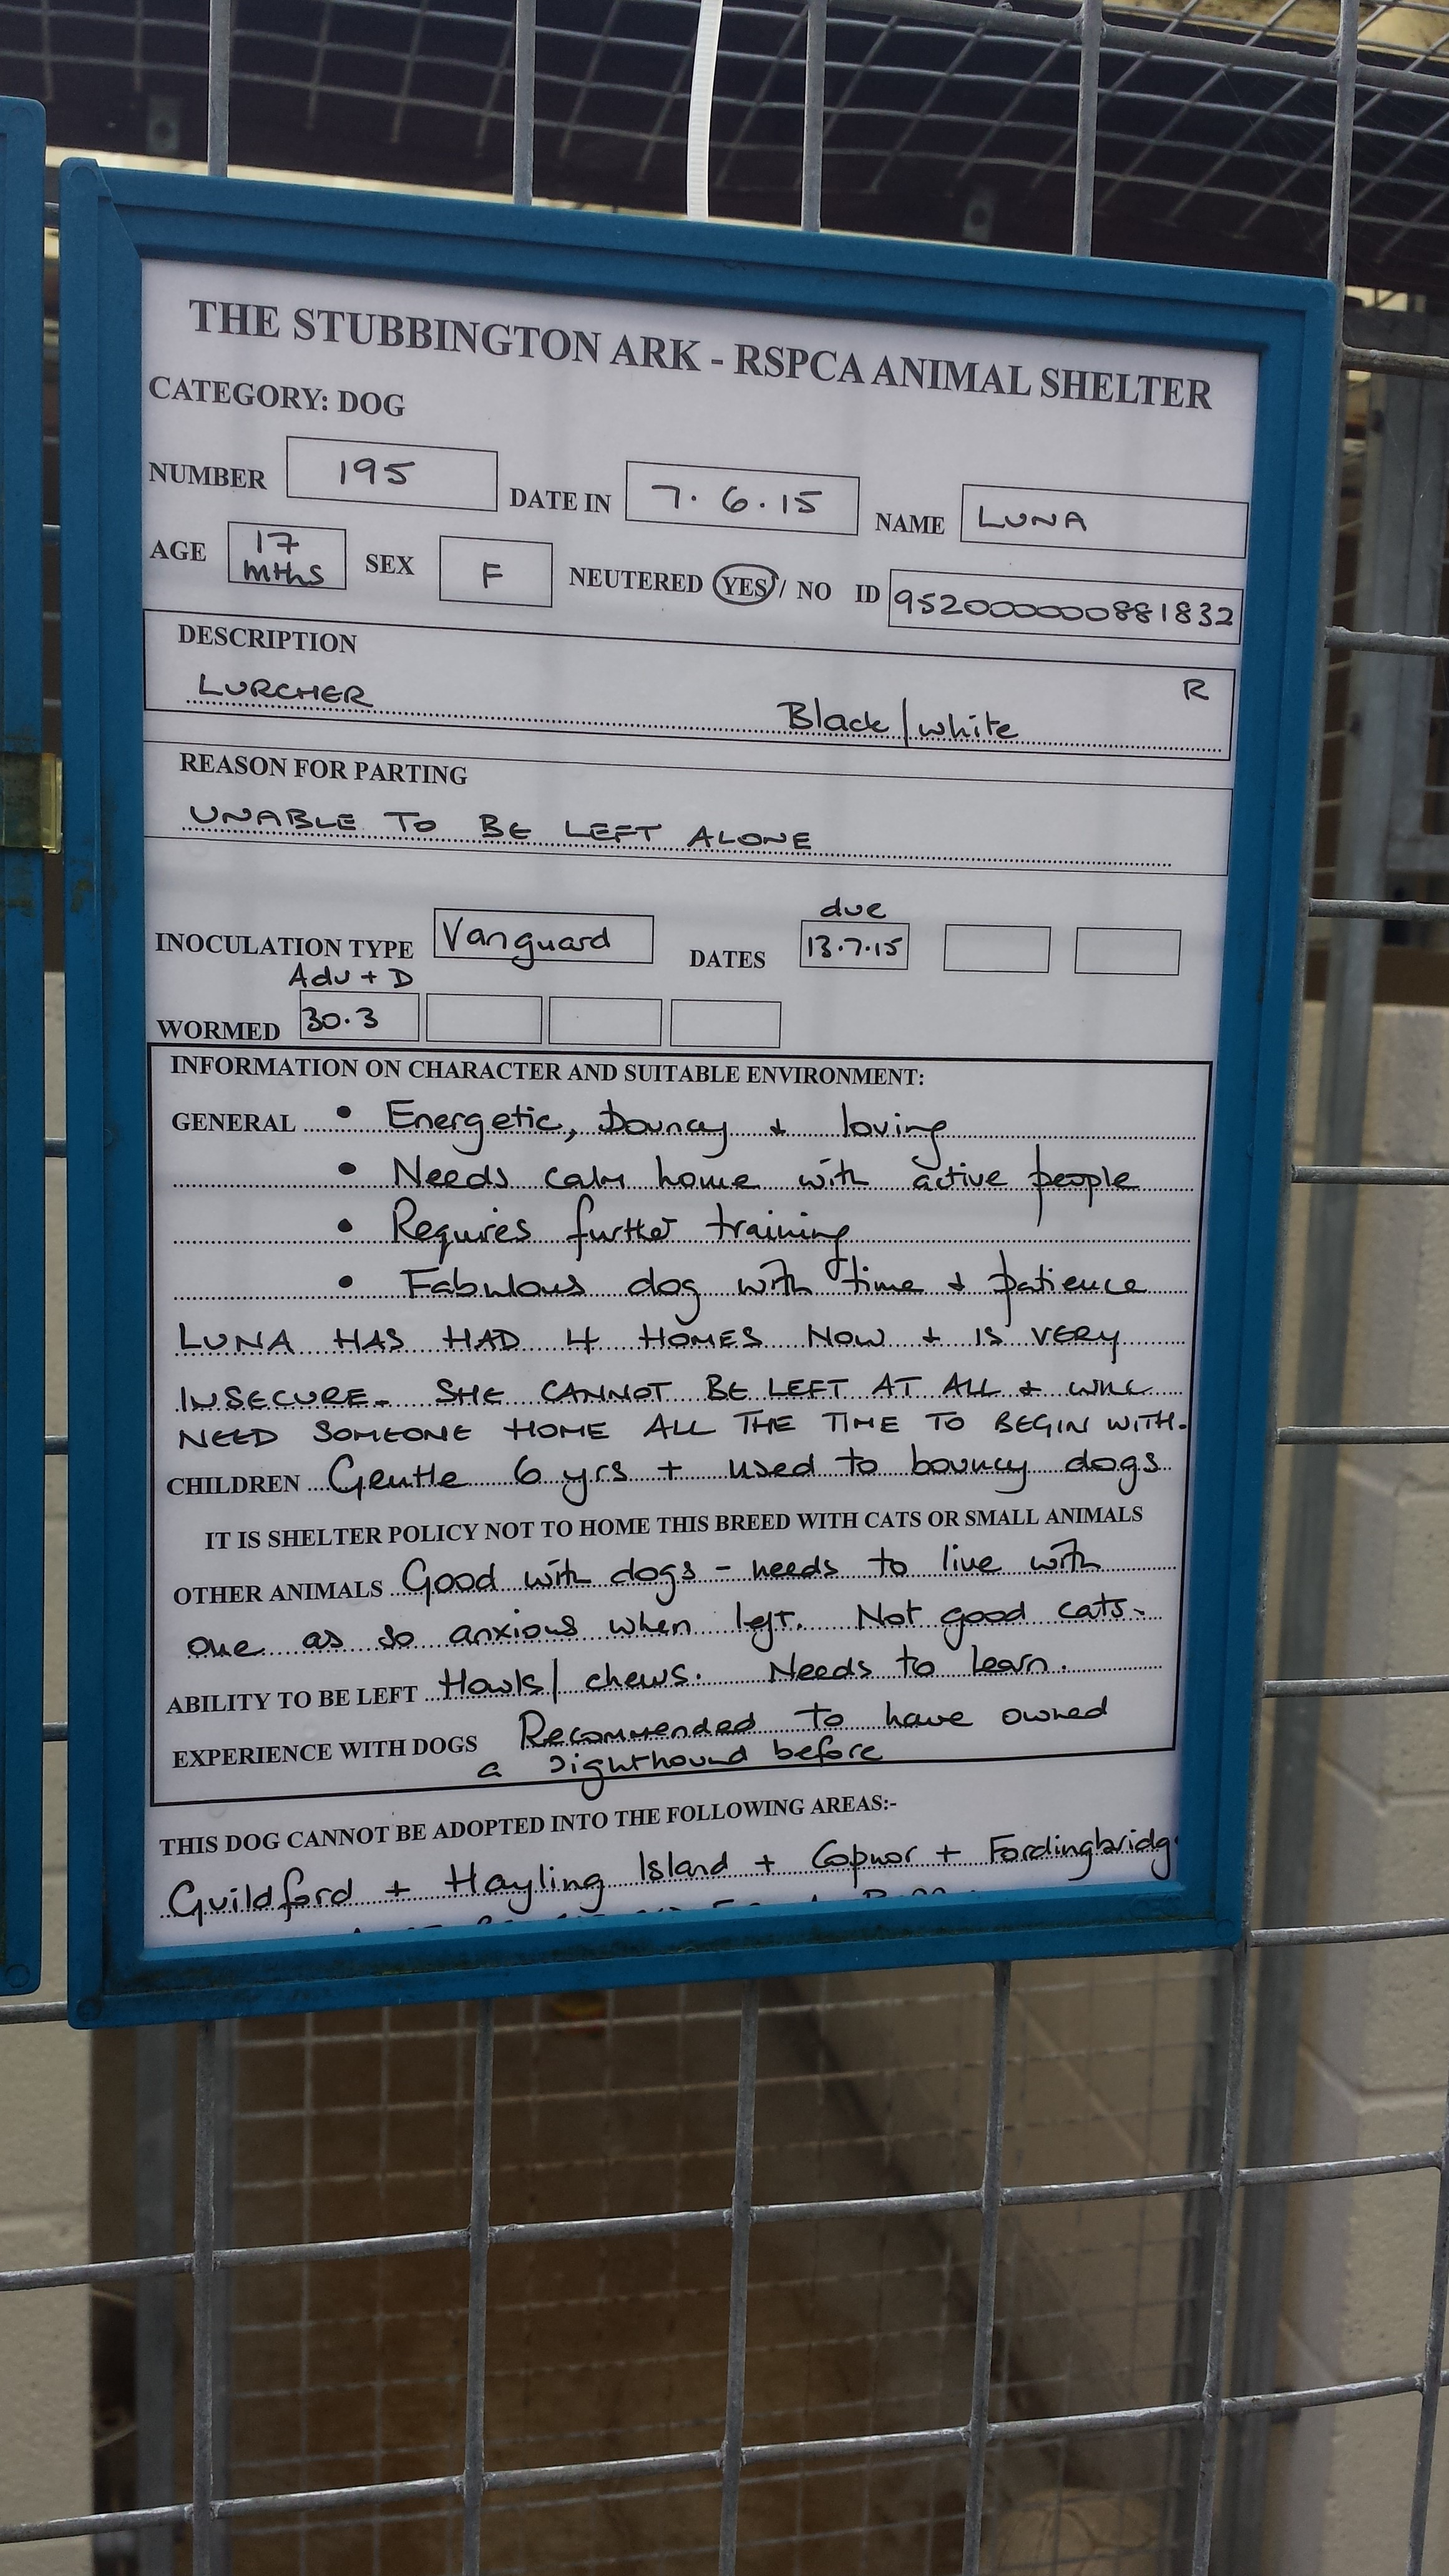 THE STUBBINGTON ARK - RSPCA ANIMAL SHELTER
CATEGORY: DOG
NUMBER 195 DATE IN 7.6.15 NAME LUNA
AGE 17 mths SEX F NEUTERED YES / NO ID 952000000881832
DESCRIPTION
R
LURCHER Black/white
REASON FOR PARTING
UNABLE TO BE LEFT ALONE
due
INOCULATION TYPE Vanguard DATES 13.7.15
Adv + D
WORMED 30.3
INFORMATION ON CHARACTER AND SUITABLE ENVIRONMENT:
GENERAL • Energetic, bouncy + loving
• Needs calm home with active people
• Requires further training
• Fabulous dog with time + patience
LUNA HAS HAD 4 HOMES NOW + IS VERY
INSECURE. SHE CANNOT BE LEFT AT ALL + WILL
NEED SOMEONE HOME ALL THE TIME TO BEGIN WITH.
CHILDREN Gentle 6 yrs + used to bouncy dogs
IT IS SHELTER POLICY NOT TO HOME THIS BREED WITH CATS OR SMALL ANIMALS
OTHER ANIMALS Good with dogs - needs to live with
one as so anxious when left. Not good cats.
ABILITY TO BE LEFT Howls/chews. Needs to learn.
EXPERIENCE WITH DOGS Recommended to have owned
a sighthound before
THIS DOG CANNOT BE ADOPTED INTO THE FOLLOWING AREAS:-
Guildford + Hayling Island + Copnor + Fordingbridge